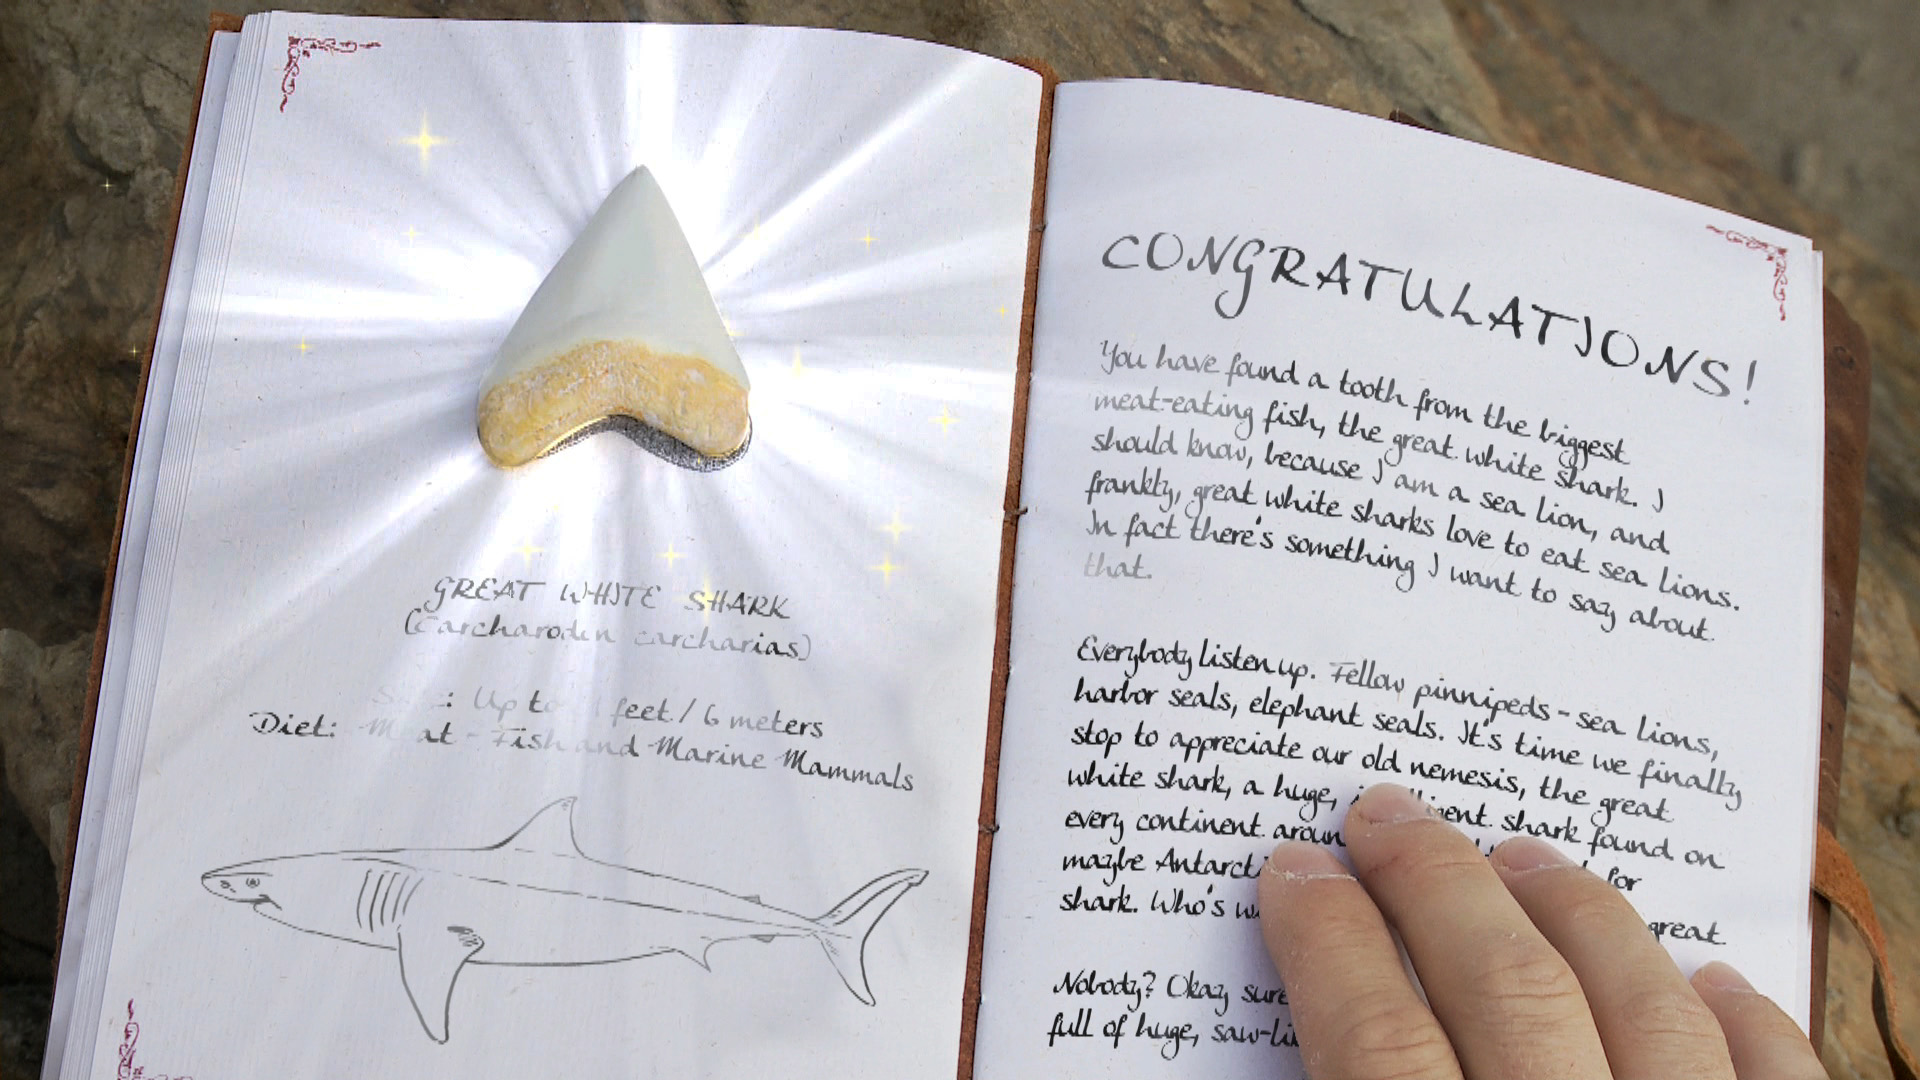 GREAT WHITE SHARK
(Carcharodon carcharias)
Up to feet / 6 meters
Diet: Meat - Fish and Marine Mammals
CONGRATULATIONS!
You have found a tooth from the biggest
meat-eating fish, the great white shark. I
should know, because I am a sea lion, and
frankly, great white sharks love to eat sea lions.
In fact there's something I want to say about
that.
Everybody listen up. Fellow pinnipeds - sea lions,
harbor seals, elephant seals. It's time we finally
stop to appreciate our old nemesis, the great
white shark, a huge, shark found on
every continent for
maybe great
shark. Who's
Nobody? Okay sure
full of huge,